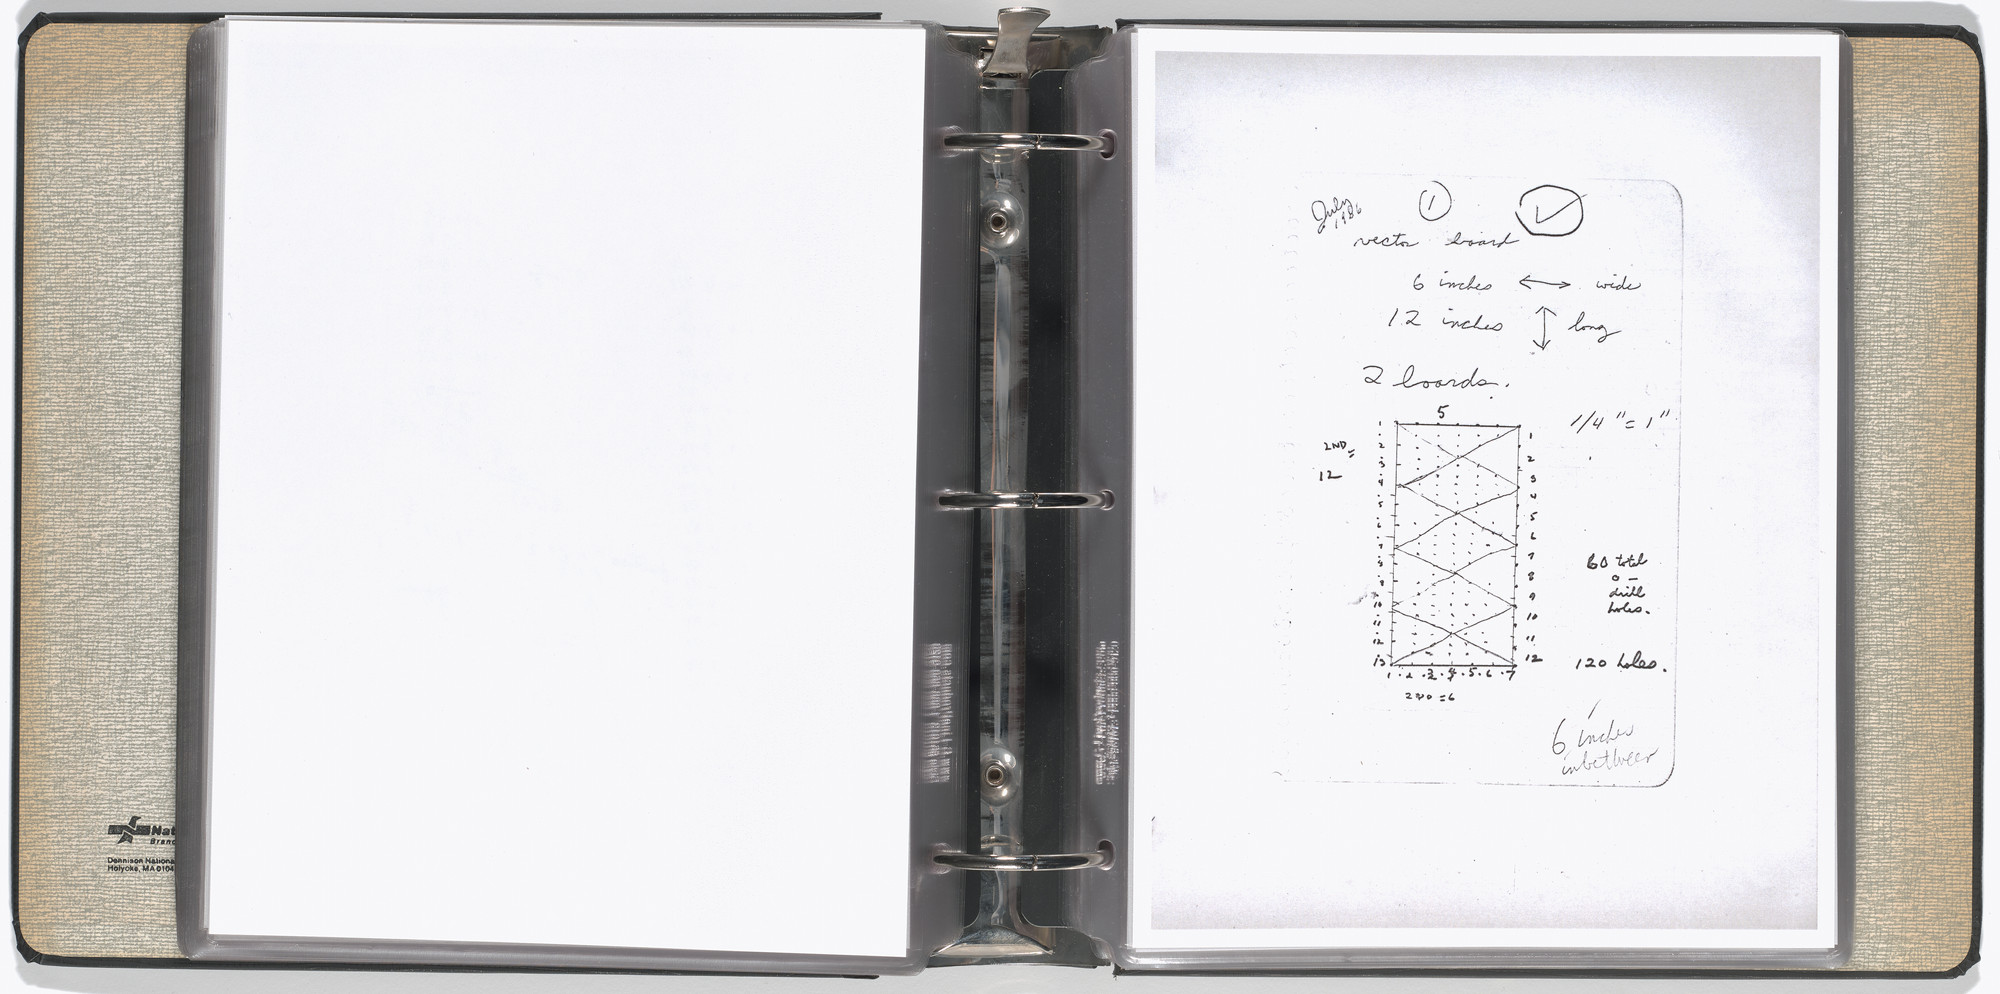 Nat
Brand
Dennison National
Holyoke, MA 0104
July
1986
1
vector board
6 inches ↔ wide
12 inches ↕ long
2 boards.
5
1/4" = 1"
2ND =
12
1
2
3
4
5
6
7
8
9
10
11
12
13
1
2
3
4
5
6
7
8
9
10
11
12
60 total
drill
holes.
120 holes.
1 . 2 . 3 . 4 . 5 . 6 . 7
2ND = 6
6 inches
inbetween